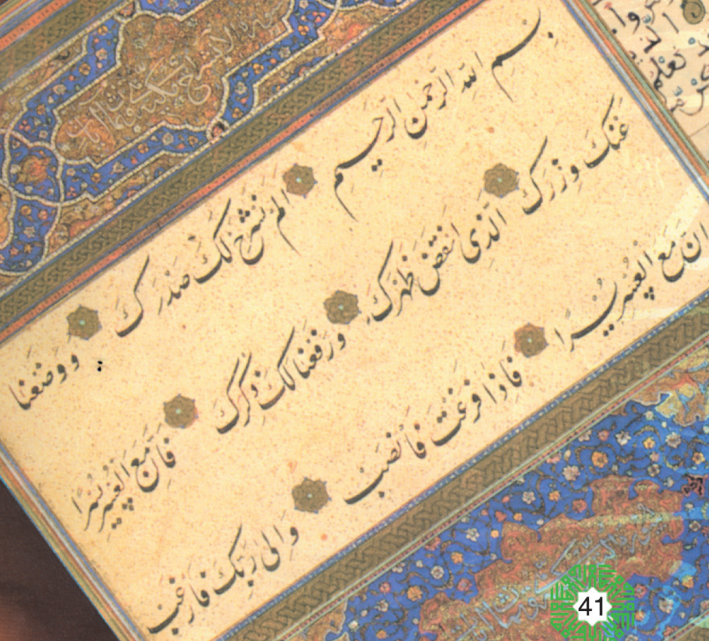 بسم الله الرحمن الرحيم الم نَشْرَحْ لَكَ صَدْرَكَ وَوَضَعْنَا
عَنْكَ وِزْرَكَ الَّذِى اَنْقَضَ ظَهْرَكَ وَرَفَعْنَا لَكَ ذِكْرَكَ فَاِنَّ مَعَ الْعُسْرِ يُسْرًا
اِنَّ مَعَ الْعُسْرِ يُسْرًا فَاِذَا فَرَغْتَ فَانْصَبْ وَاِلَى رَبِّكَ فَارْغَبْ
41